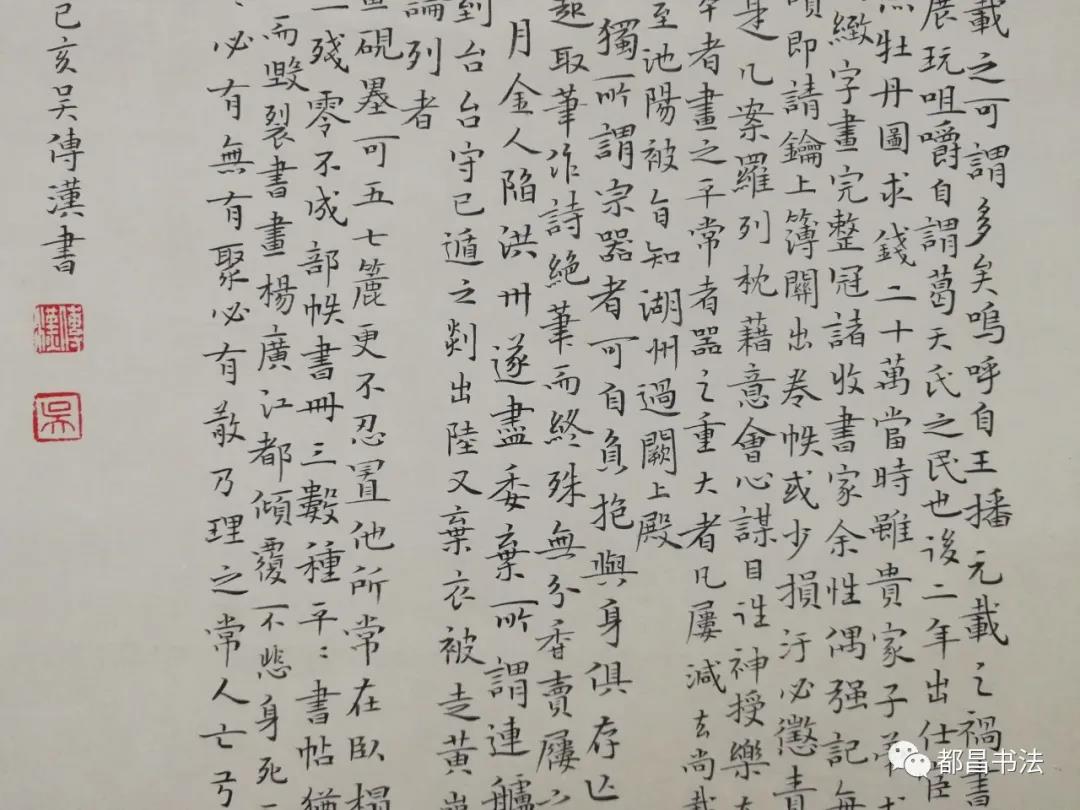 載之可謂多矣嗚呼自王播元載之禍書
展玩咀嚼自謂葛天氏之民也後二年出仕宦
熙牡丹圖求錢二十萬當時雖貴家子弟求
緻字畫完整冠諸收書家余性偶强記每
請鑰上簿關出卷帙或少損汙必懲責
是几案羅列枕藉意會心謀目往神授樂在
者畫之平常者器之重大者凡屢減去尚載
至池陽被旨知湖州過闕上殿
獨所謂宗器者可自負抱與身俱存亡
起取筆作詩絕筆而終殊無分香賣屨之
月金人陷洪州遂盡委棄所謂連艫
到台台守已遁之剡出陸又棄衣被走黃巖
論列者
畫硯墨可五七簏更不忍置他所常在臥榻
一殘零不成部帙書冊三數種平〻書帖猶
而毀裂書畫楊廣江都傾覆不悲身死
必有無有聚必有散乃理之常人亡弓
己亥吳傳漢書
傳漢
吳
都昌书法